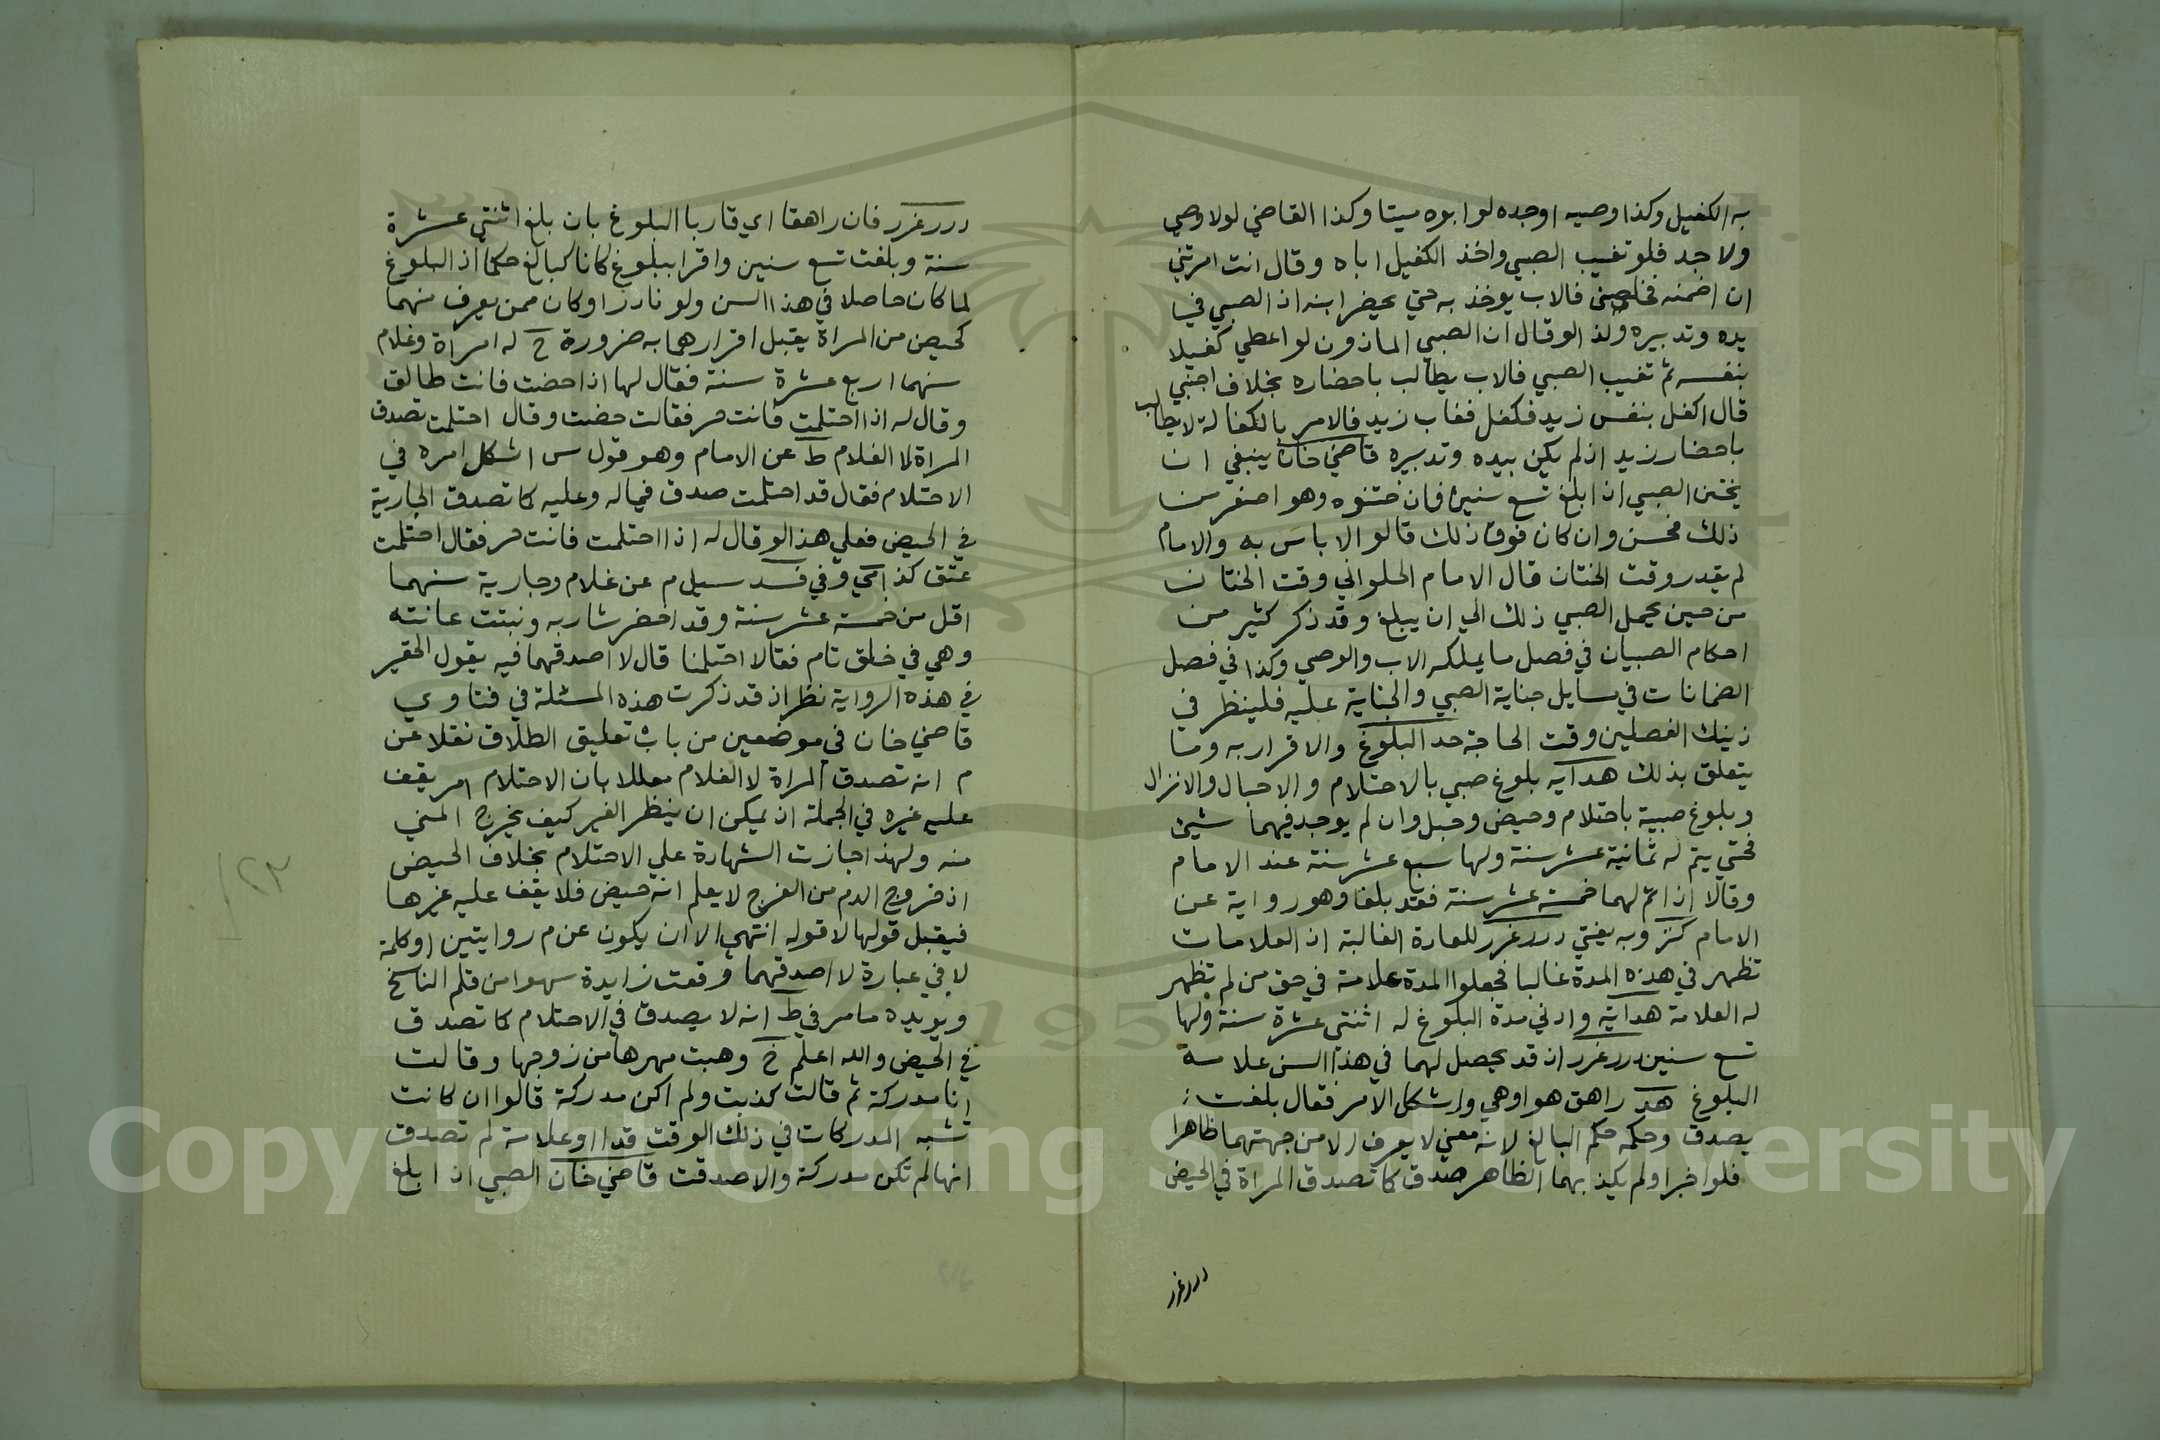 به الكفيل وكذا وصيه اوجده لو ابوه ميتا وكذا القاضي لولا وصي
ولا جد فلو تغيب الصبي واخذ الكفيل اباه وقال انت امرتني
ان اضمنه فخلصني فالاب يوخذ به حتي يحضر ابنه اذ الصبي في
يده وتدبيره ولذا لو قال ان الصبي الماذون لو اعطي كفيلا
بنفسه ثم تغيب الصبي فالاب يطالب باحضاره بخلاف اجنبي
قال اكفل بنفس زيد فكفل فغاب زيد فالامر بالكفالة لا يطالب
باحضار زيد اذ لم يكن بيده وتدبيره قاضي خان ينبغي ان
يختن الصبي اذا بلغ تسع سنين فان ختنوه وهو اصغر من
ذلك فحسن وان كان فوق ذلك قالوا لا باس به والامام
لم يقدر وقت الختان قال الامام الحلواني وقت الختان
من حين يحمل الصبي ذلك الي ان يبلغ وقد ذكر كثير من
احكام الصبيان في فصل ما يملكه الاب والوصي وكذا في فصل
الضمانات في مسايل جناية الصبي والجناية عليه فلينظر في
ذينك الفصلين وقت الحاجة حد البلوغ والاقرار به وما
يتعلق بذلك هداية بلوغ صبي بالاحتلام والاحبال والانزال
وبلوغ صبية باحتلام وحيض وحبل وان لم يوجد فيهما شيئ
فحتي يتم له ثمانية عشر سنة ولها سبع عشر سنة عند الامام
وقالا اذا تم لهما خمسة عشر سنة فقد بلغا وهو رواية عن
الامام كنز وبه يفتي درر غرر للعادة الغالبة اذ العلامات
تظهر في هذه المدة غالبا فجعلوا المدة علامة في حق من لم تظهر
له العلامة هداية وادني مدة البلوغ له اثنتي عشرة سنة ولها
تسع سنين درر غرر اذ قد يحصل لهما في هذا السن علامة
البلوغ هد راهق هو او هي واشكل الامر فقال بلغت
يصدق وحكمه حكم البالغ لانه معني لا يعرف الا من جهتهما ظاهرا
فلو اخبرا ولم يكذبهما الظاهر صدق كما تصدق المراة في الحيض
درر غرر
درر غرر فان راهقا اي قاربا البلوغ بان بلغ اثنتي عشرة
سنة وبلغت تسع سنين واقرا ببلوغ كانا كبالغ حكما اذ البلوغ
لما كان حاصلا في هذا السن ولو نادرا وكان ممن يعرف منهما
كحيض من المراة يقبل اقرارهما به ضرورة خ له امراة وغلام
سنهما اربع عشرة سنة فقال لها اذا حضت فانت طالق
وقال له اذا احتلمت فانت حر فقالت حضت وقال احتلمت تصدق
المراة لا الغلام ط عن الامام وهو قول س اشكل امره في
الاحتلام فقال قد احتلمت صدق فيما له وعليه كما تصدق الجارية
في الحيض فعلي هذا لو قال له اذا احتلمت فانت حر فقال احتلمت
عتق كذا وفي فسد سيل م عن غلام وجارية سنهما
اقل من خمسة عشر سنة وقد اخضر شاربه ونبتت عانته
وهي في خلق تام فقالا احتلمنا قال لا اصدقهما فيه يقول الحقير
في هذه الرواية نظر اذ قد ذكرت هذه المسئلة في فتاوي
قاضي خان في موضعين من باب تعليق الطلاق نقلا عن
م انه تصدق المراة لا الغلام معللا بان الاحتلام امر يقف
عليه غيره في الجملة اذ يمكن ان ينظر الغير كيف يخرج المني
منه ولهذا جازت الشهادة علي الاحتلام بخلاف الحيض
اذ خروج الدم من الفرج لا يعلم انه حيض فلا يقف عليه غيرها
فيقبل قولها لا قوله انتهي الا ان يكون عن م روايتين او كلمة
لا في عبارة لا اصدقهما وقعت زايدة سهوا من قلم الناسخ
ويويده ما مر في ط انه لا يصدق في الاحتلام كما تصدق
في الحيض والله اعلم خ وهبت مهرها من زوجها وقالت
انا مدركة ثم قالت كذبت ولم اكن مدركة قالوا ان كانت
تشبه المدركات في ذلك الوقت قدا او علامة لم تصدق
انها لم تكن مدركة والا صدقت قاضي خان الصبي اذا بلغ
Copyright © King Saud University
1957